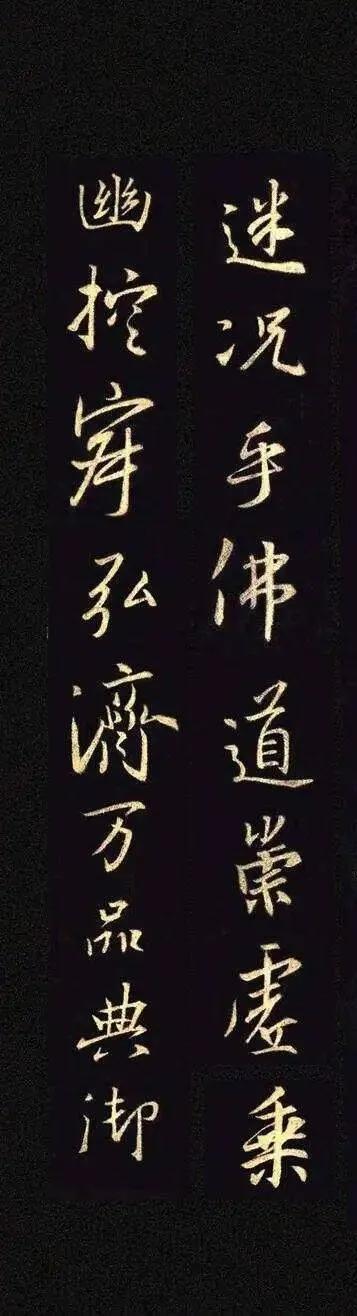 迷况乎佛道崇虚乘
幽控寂弘济万品典御